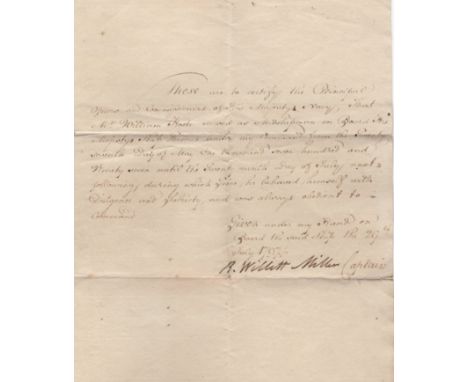 These are to certify the Principal
Officers and Commissioners of His Majesty's Navy, that
Mr. William served as Midshipman on Board His
Majesty's Ship Theseus under my Command from the Twenty
seventh Day of May One thousand seven hundred and
Ninety seven until the Twenty ninth Day of July next
following, during which time, he behaved himself with
Diligence and Sobriety, and was always obedient to
Command
Given under my Hand on
Board the said Ship the 29th
July 1797
R. Willett Miller Captain